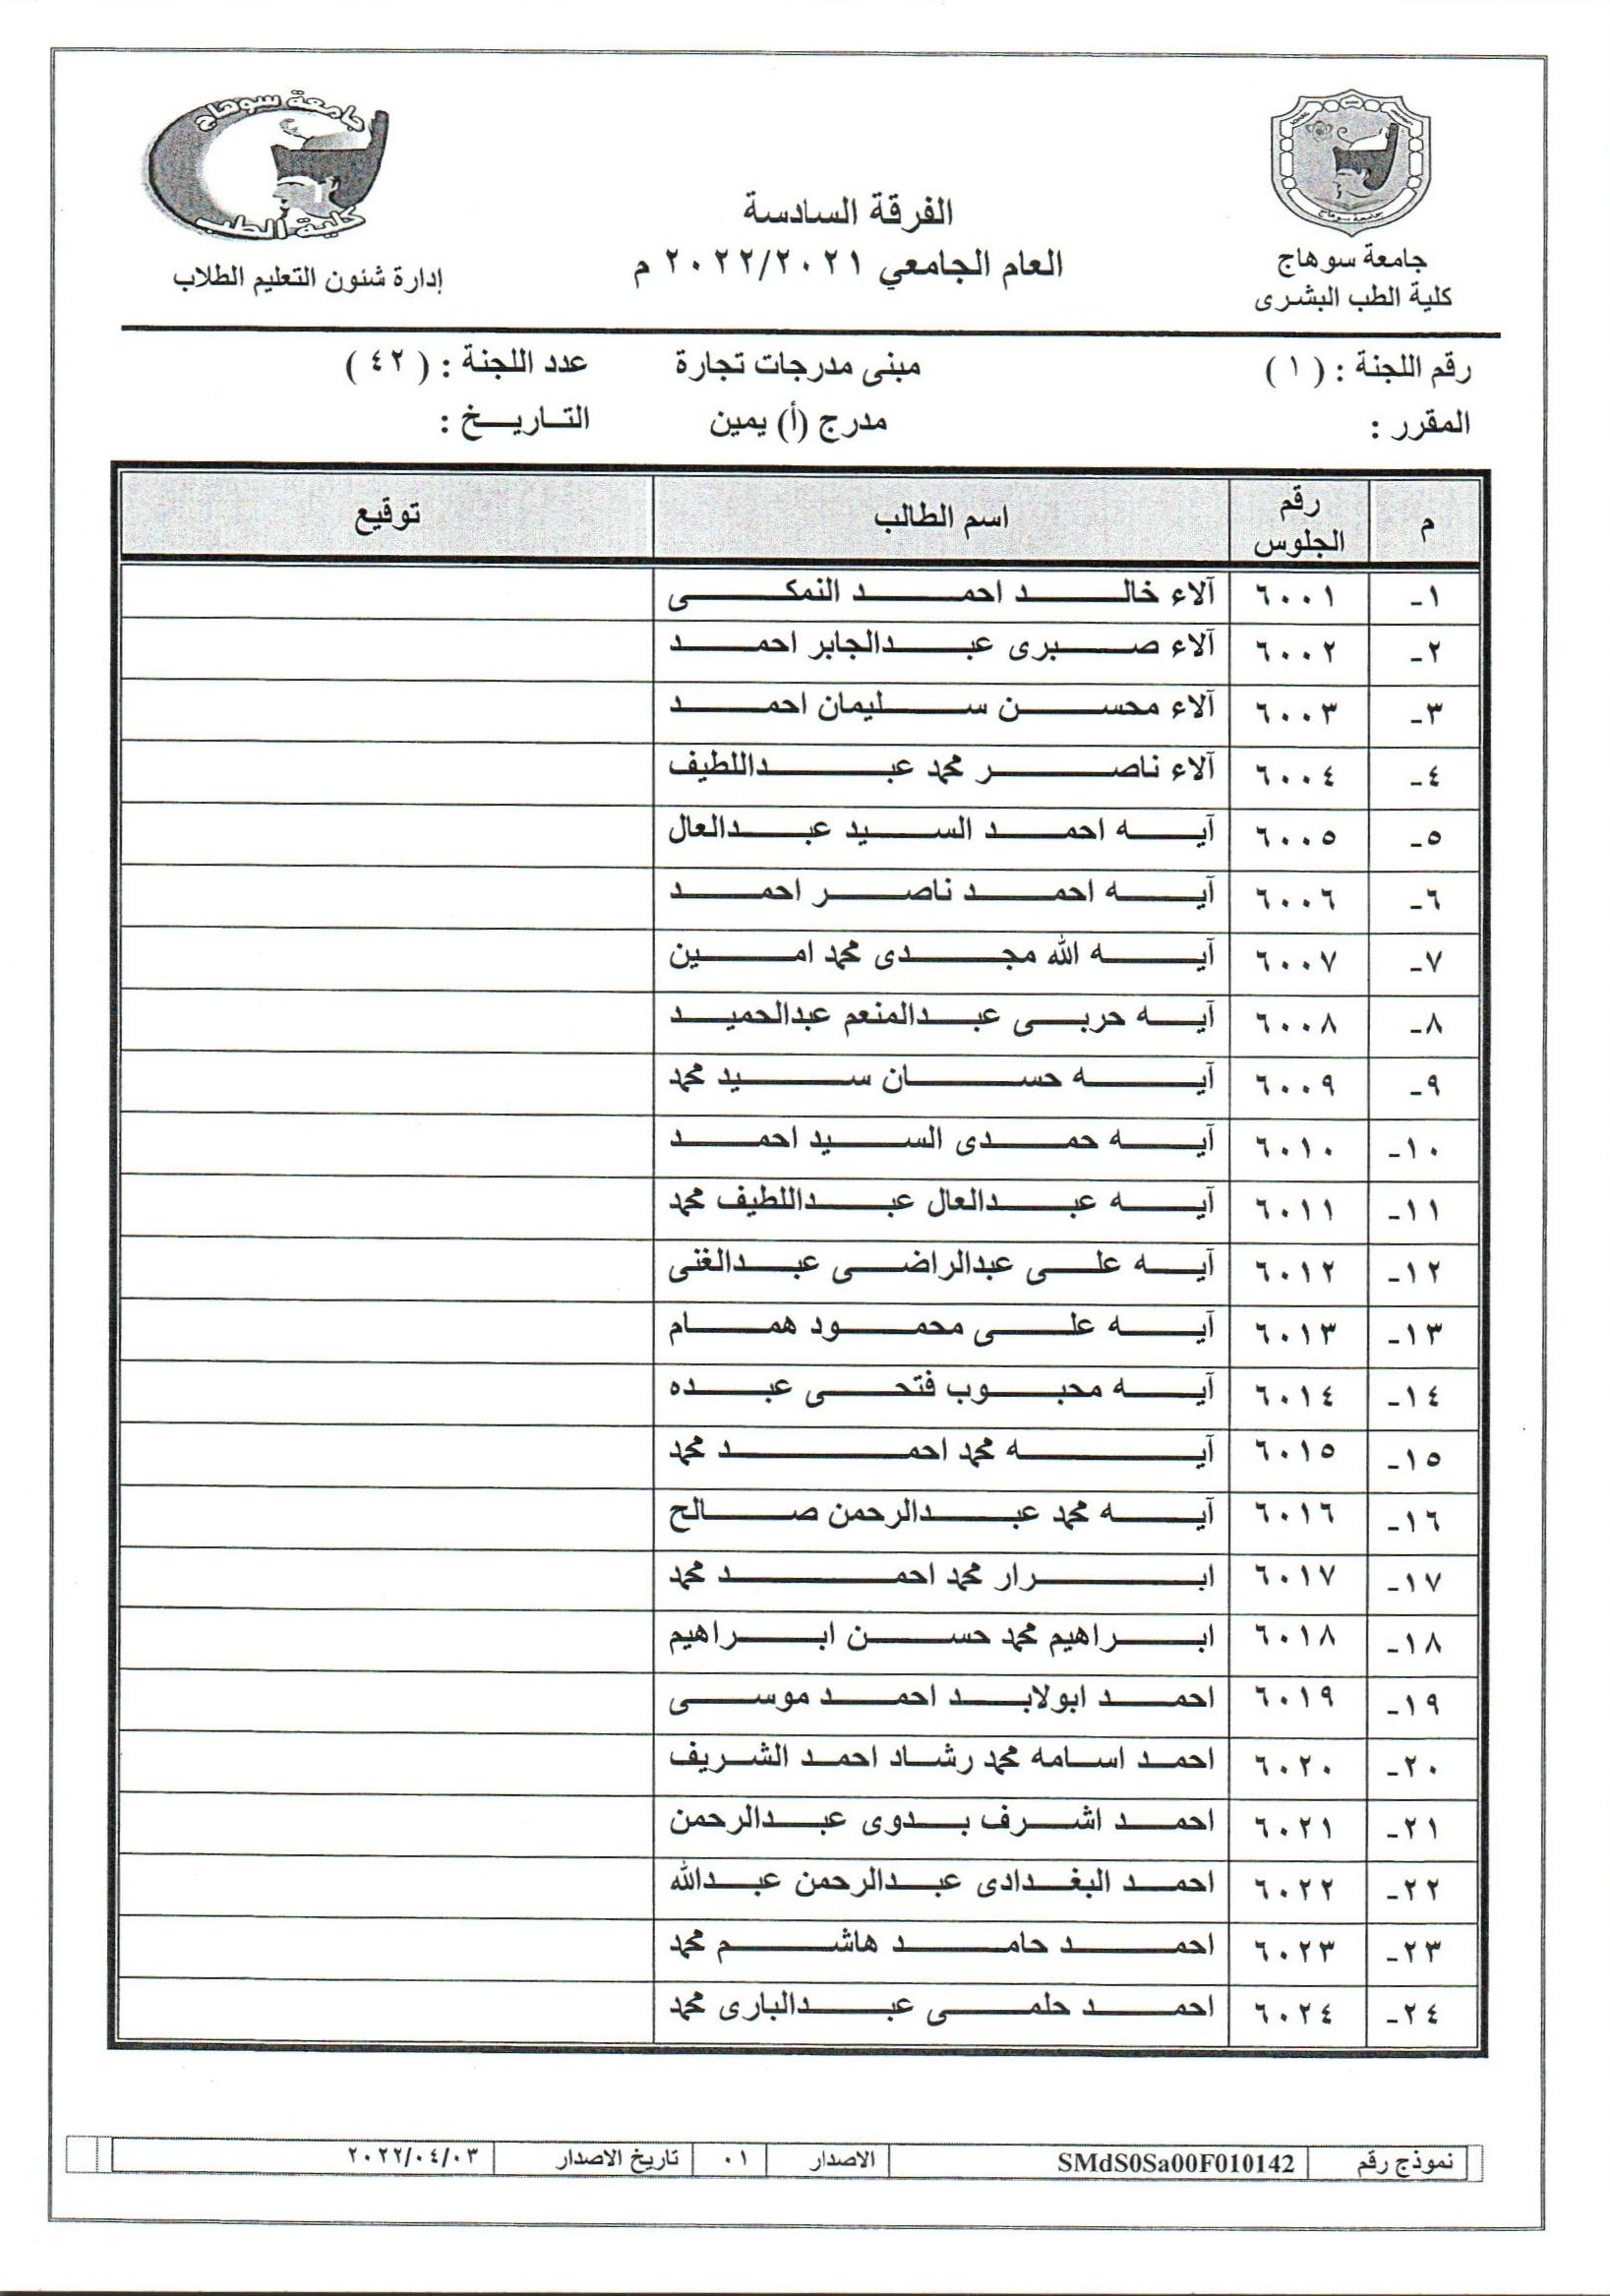 جامعة سوهاج
كلية الطب
جامعة سوهاج
الفرقة السادسة
العام الجامعي ٢٠٢٢/٢٠٢١ م
جامعة سوهاج
كلية الطب البشرى
إدارة شئون التعليم الطلاب
رقم اللجنة : ( ١ ) مبنى مدرجات تجارة عدد اللجنة : ( ٤٢ )
المقرر : مدرج (أ) يمين التاريخ :
م رقم الجلوس اسم الطالب توقيع
١- ٦٠٠١ آلاء خالد احمد النمكى
٢- ٦٠٠٢ آلاء صبرى عبدالجابر احمد
٣- ٦٠٠٣ آلاء محسن سليمان احمد
٤- ٦٠٠٤ آلاء ناصر محمد عبداللطيف
٥- ٦٠٠٥ آيه احمد السيد عبدالعال
٦- ٦٠٠٦ آيه احمد ناصر احمد
٧- ٦٠٠٧ آيه الله مجدى محمد امين
٨- ٦٠٠٨ آيه حربى عبدالمنعم عبدالحميد
٩- ٦٠٠٩ آيه حسان سيد محمد
١٠- ٦٠١٠ آيه حمدى السيد احمد
١١- ٦٠١١ آيه عبدالعال عبداللطيف محمد
١٢- ٦٠١٢ آيه على عبدالراضى عبدالغنى
١٣- ٦٠١٣ آيه على محمود همام
١٤- ٦٠١٤ آيه محبوب فتحى عبده
١٥- ٦٠١٥ آيه محمد احمد محمد
١٦- ٦٠١٦ آيه محمد عبدالرحمن صالح
١٧- ٦٠١٧ ابرار محمد احمد محمد
١٨- ٦٠١٨ ابراهيم محمد حسن ابراهيم
١٩- ٦٠١٩ احمد ابولابد احمد موسى
٢٠- ٦٠٢٠ احمد اسامه محمد رشاد احمد الشريف
٢١- ٦٠٢١ احمد اشرف بدوى عبدالرحمن
٢٢- ٦٠٢٢ احمد البغدادى عبدالرحمن عبدالله
٢٣- ٦٠٢٣ احمد حامد هاشم محمد
٢٤- ٦٠٢٤ احمد حلمى عبدالبارى محمد
نموذج رقم SMdS0Sa00F010142 الاصدار ٠١ تاريخ الاصدار ٢٠٢٢/٠٤/٠٣